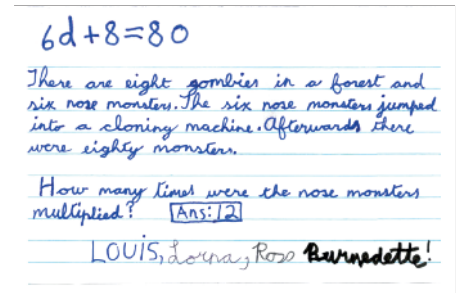 6d+8=80
There are eight gombies in a forest and
six nose monsters. The six nose monsters jumped
into a cloning machine. Afterwards there
were eighty monsters.
How many times were the nose monsters
multiplied? Ans: 12
LOUIS, Lorna, Ross Burnedette!